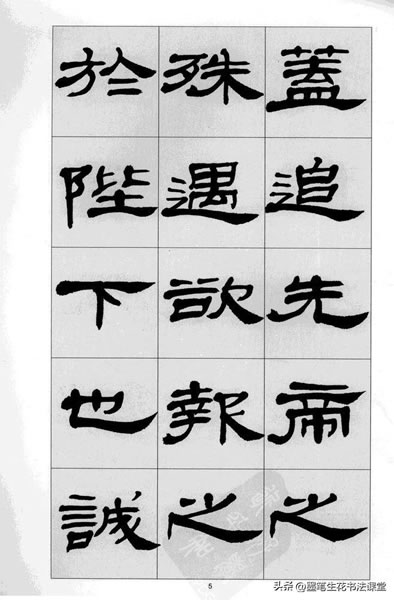 蓋追先帝之
殊遇欲報之
於陛下也誠
5
头条@墨笔生花书法课堂